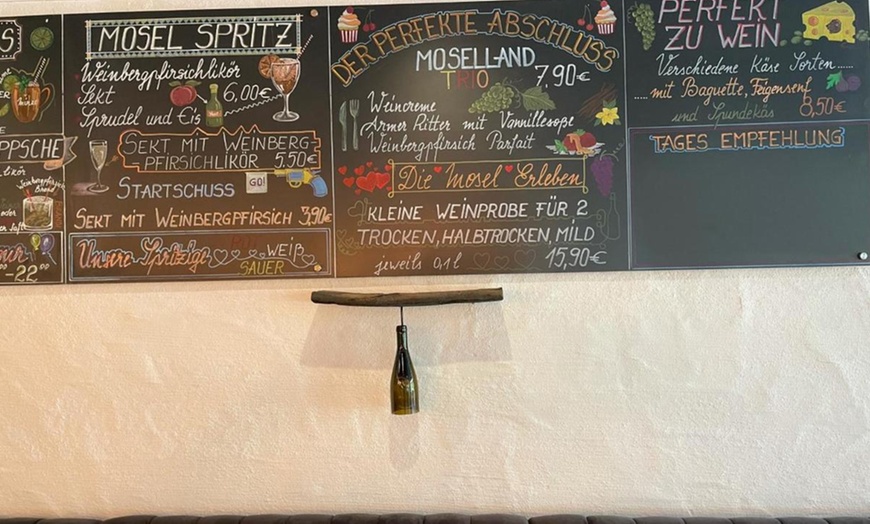 S
PPSCHE
likör
-22°°
MOSEL SPRITZ
Weinbergpfirsichlikör
Sekt 6,00€
Sprudel und Eis
SEKT MIT WEINBERG-
PFIRSICHLIKÖR 5,50€
STARTSCHUSS GO!
SEKT MIT WEINBERGPFIRSICH 3,90€
Unsere Spritzige ROT WEIß
SAUER
DER PERFEKTE ABSCHLUSS
MOSELLAND
TRIO 7,90€
Weincreme
Armer Ritter mit Vanillesoße
Weinbergpfirsich Parfait
Die Mosel Erleben
KLEINE WEINPROBE FÜR 2
TROCKEN, HALBTROCKEN, MILD
jeweils 0,1l 15,90€
PERFEKT
ZU WEIN
Verschiedene Käse Sorten.....
.....mit Baguette, Feigensenf
und Spundekäs 8,50€
TAGES EMPFEHLUNG